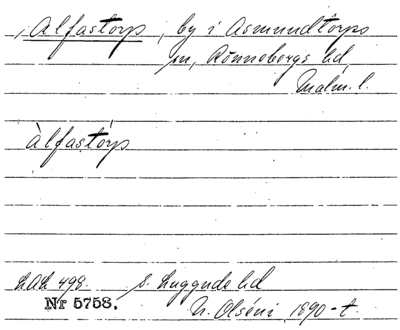 Alfastorp, by i Asmundtorps
sn, Rönnebergs hd,
Malm. l.
àlfastórp
LAL 498. s. Luggude hd
Nr 5758. N. Olséni 1890-t.